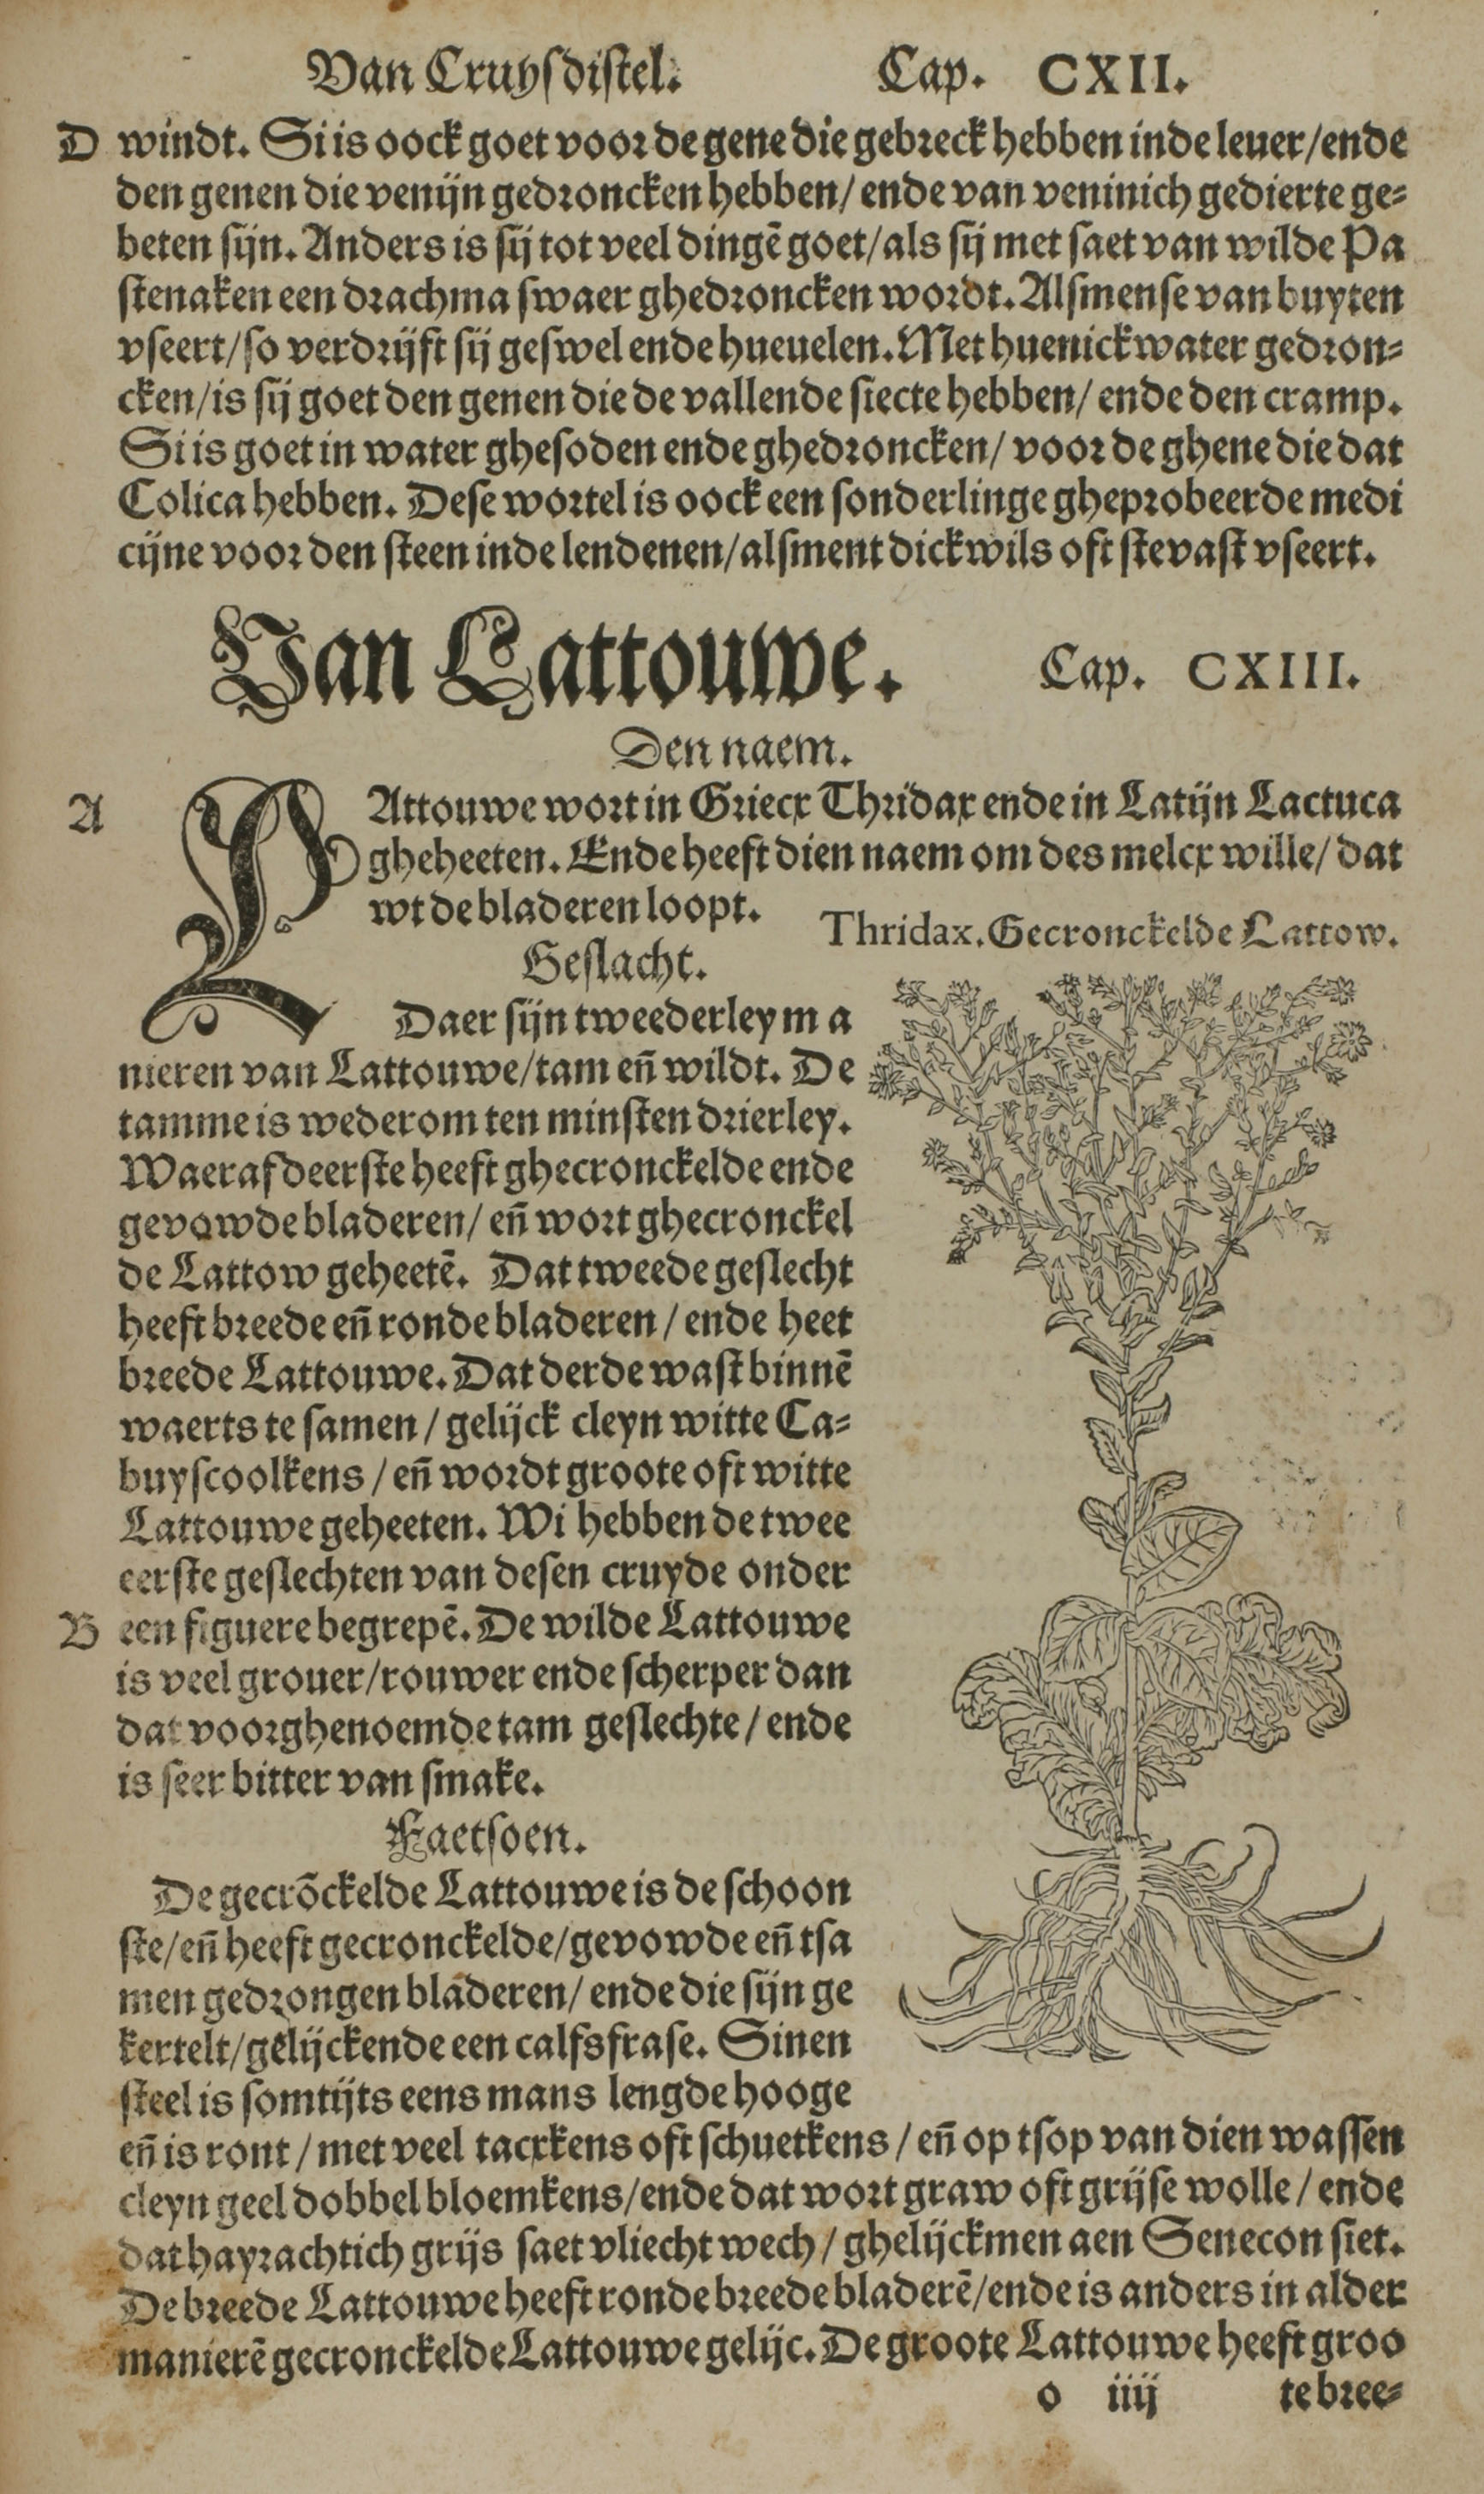 Van Cruysdistel. Cap. CXII.
D windt. Si is oock goet voor de gene die gebreck hebben inde leuer/ende
den genen die venijn gedroncken hebben/ ende van veninich gedierte ge-
beten sijn. Anders is sij tot veel dingē goet/als sij met saet van wilde Pa
stenaken een drachma swaer ghedroncken wordt. Alsmense van buyten
vseert/so verdrijft sij geswel ende hueuelen. Met huenickwater gedron-
cken/is sij goet den genen die de vallende siecte hebben/ ende den cramp.
Si is goet in water ghesoden ende ghedroncken/ voor de ghene die dat
Colica hebben. Dese wortel is oock een sonderlinge gheprobeerde medi
cijne voor den steen inde lendenen/alsment dickwils oft stevast vseert.
Van Lattouwe. Cap. CXIII.
Den naem.
A LAttouwe wort in Griecx Thridax ende in Latijn Lactuca
gheheeten. Ende heeft dien naem om des melcx wille/ dat
wt de bladeren loopt.
Thridax. Gecronckelde Lattow.
Geslacht.
Daer sijn tweederley ma
nieren van Lattouwe/tam eñ wildt. De
tamme is wederom ten minsten drierley.
Waeraf deerste heeft ghecronckelde ende
gevowde bladeren/ eñ wort ghecronckel
de Lattow geheetē. Dat tweede geslecht
heeft breede eñ ronde bladeren / ende heet
breede Lattouwe. Dat derde wast binnē
waerts te samen / gelijck cleyn witte Ca-
buyscoolkens / eñ wordt groote oft witte
Lattouwe geheeten. Wi hebben de twee
eerste geslechten van desen cruyde onder
B een figuere begrepē. De wilde Lattouwe
is veel grouer/rouwer ende scherper dan
dat voorghenoemde tam geslechte / ende
is seer bitter van smake.
Faetsoen.
De gecrōckelde Lattouwe is de schoon
ste/eñ heeft gecronckelde/gevowde eñ tsa
men gedrongen bladeren/ ende die sijn ge
kertelt/gelijckende een calfsfrase. Sinen
steel is somtijts eens mans lengde hooge
eñ is ront / met veel tacxkens oft schuetkens / eñ op tsop van dien wassen
cleyn geel dobbel bloemkens/ende dat wort graw oft grijse wolle / ende
dat hayrachtich grijs saet vliecht wech / ghelijckmen aen Senecon siet.
De breede Lattouwe heeft ronde breede bladerē/ende is anders in alder
manierē gecronckelde Lattouwe gelijc. De groote Lattouwe heeft groo
o iiij te bree-